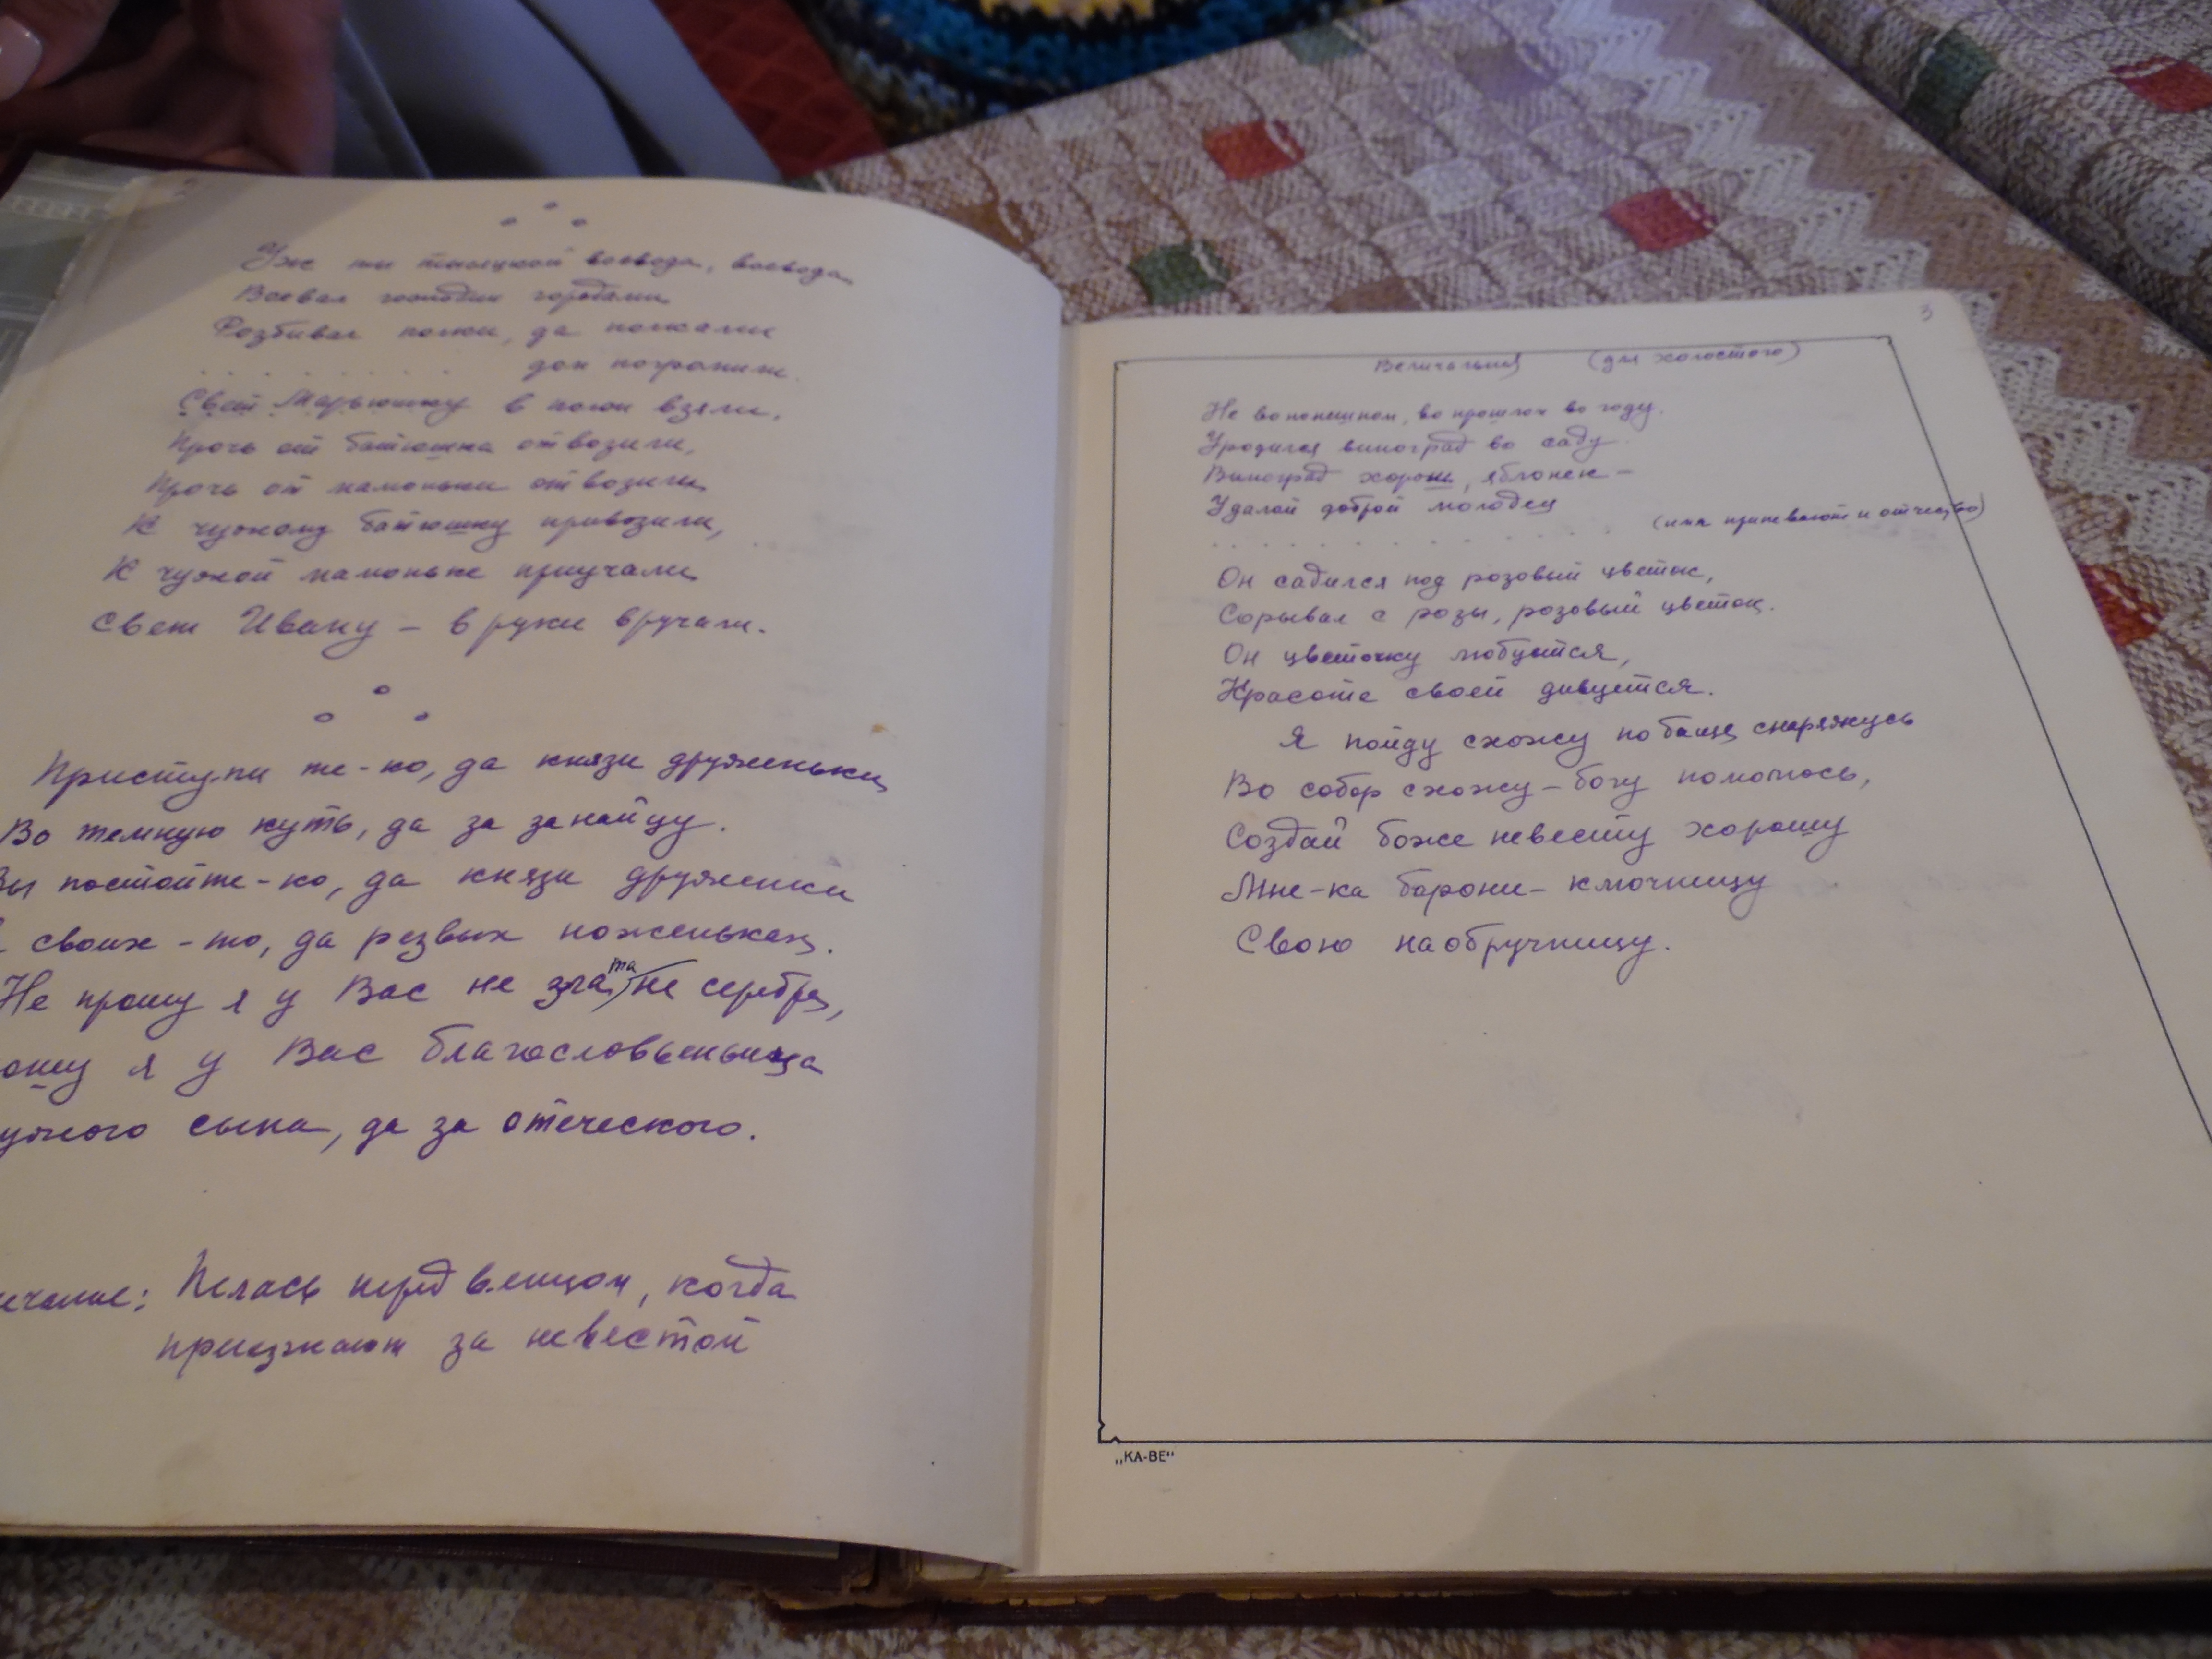 Уж ты воевода, воевода
Воевал господин городами
Розбивал полки, да полками
. . . . . . . . дом пограмили.
Свет Марьюшку в полон взяли,
Прочь от батюшка отвозили,
Прочь от мамоньки отвозили
К чужому батюшку привозили,
К чужой мамоньке приучали
Свет Ивану – в руки вручали.
Приступи те-ко, да князи друженьки
Во темную куть, да за занайцу.
Вы постойте-ко, да князи друженки
своих-то, да резвых ноженьках.
Не прошу я у Вас не злата не серебра,
ошу я у Вас благословленьица
ужого сына, да за отеческого.
ечание: Пелась перед венцом, когда
приезжают за невестой
3
Величальная (для холостого)
Не во нонешном, во прошлом во году.
Уродился виноград во саду
Виноград хорош, яблонек –
Удалой доброй молодец
. . . . . . . . . . . . . (имя припевают и отчество)
Он садился под розовый цветок,
Сорывал с розы, розовый цветок.
Он цветочку любуется,
Красоте своей дивуется.
Я пойду схожу по баще снаряжусь
Во собор схожу – богу помолюсь,
Создай боже невесту хорошу
Мне-ка барони – ключницу
Свою наобручницу.
„КА-ВЕ"